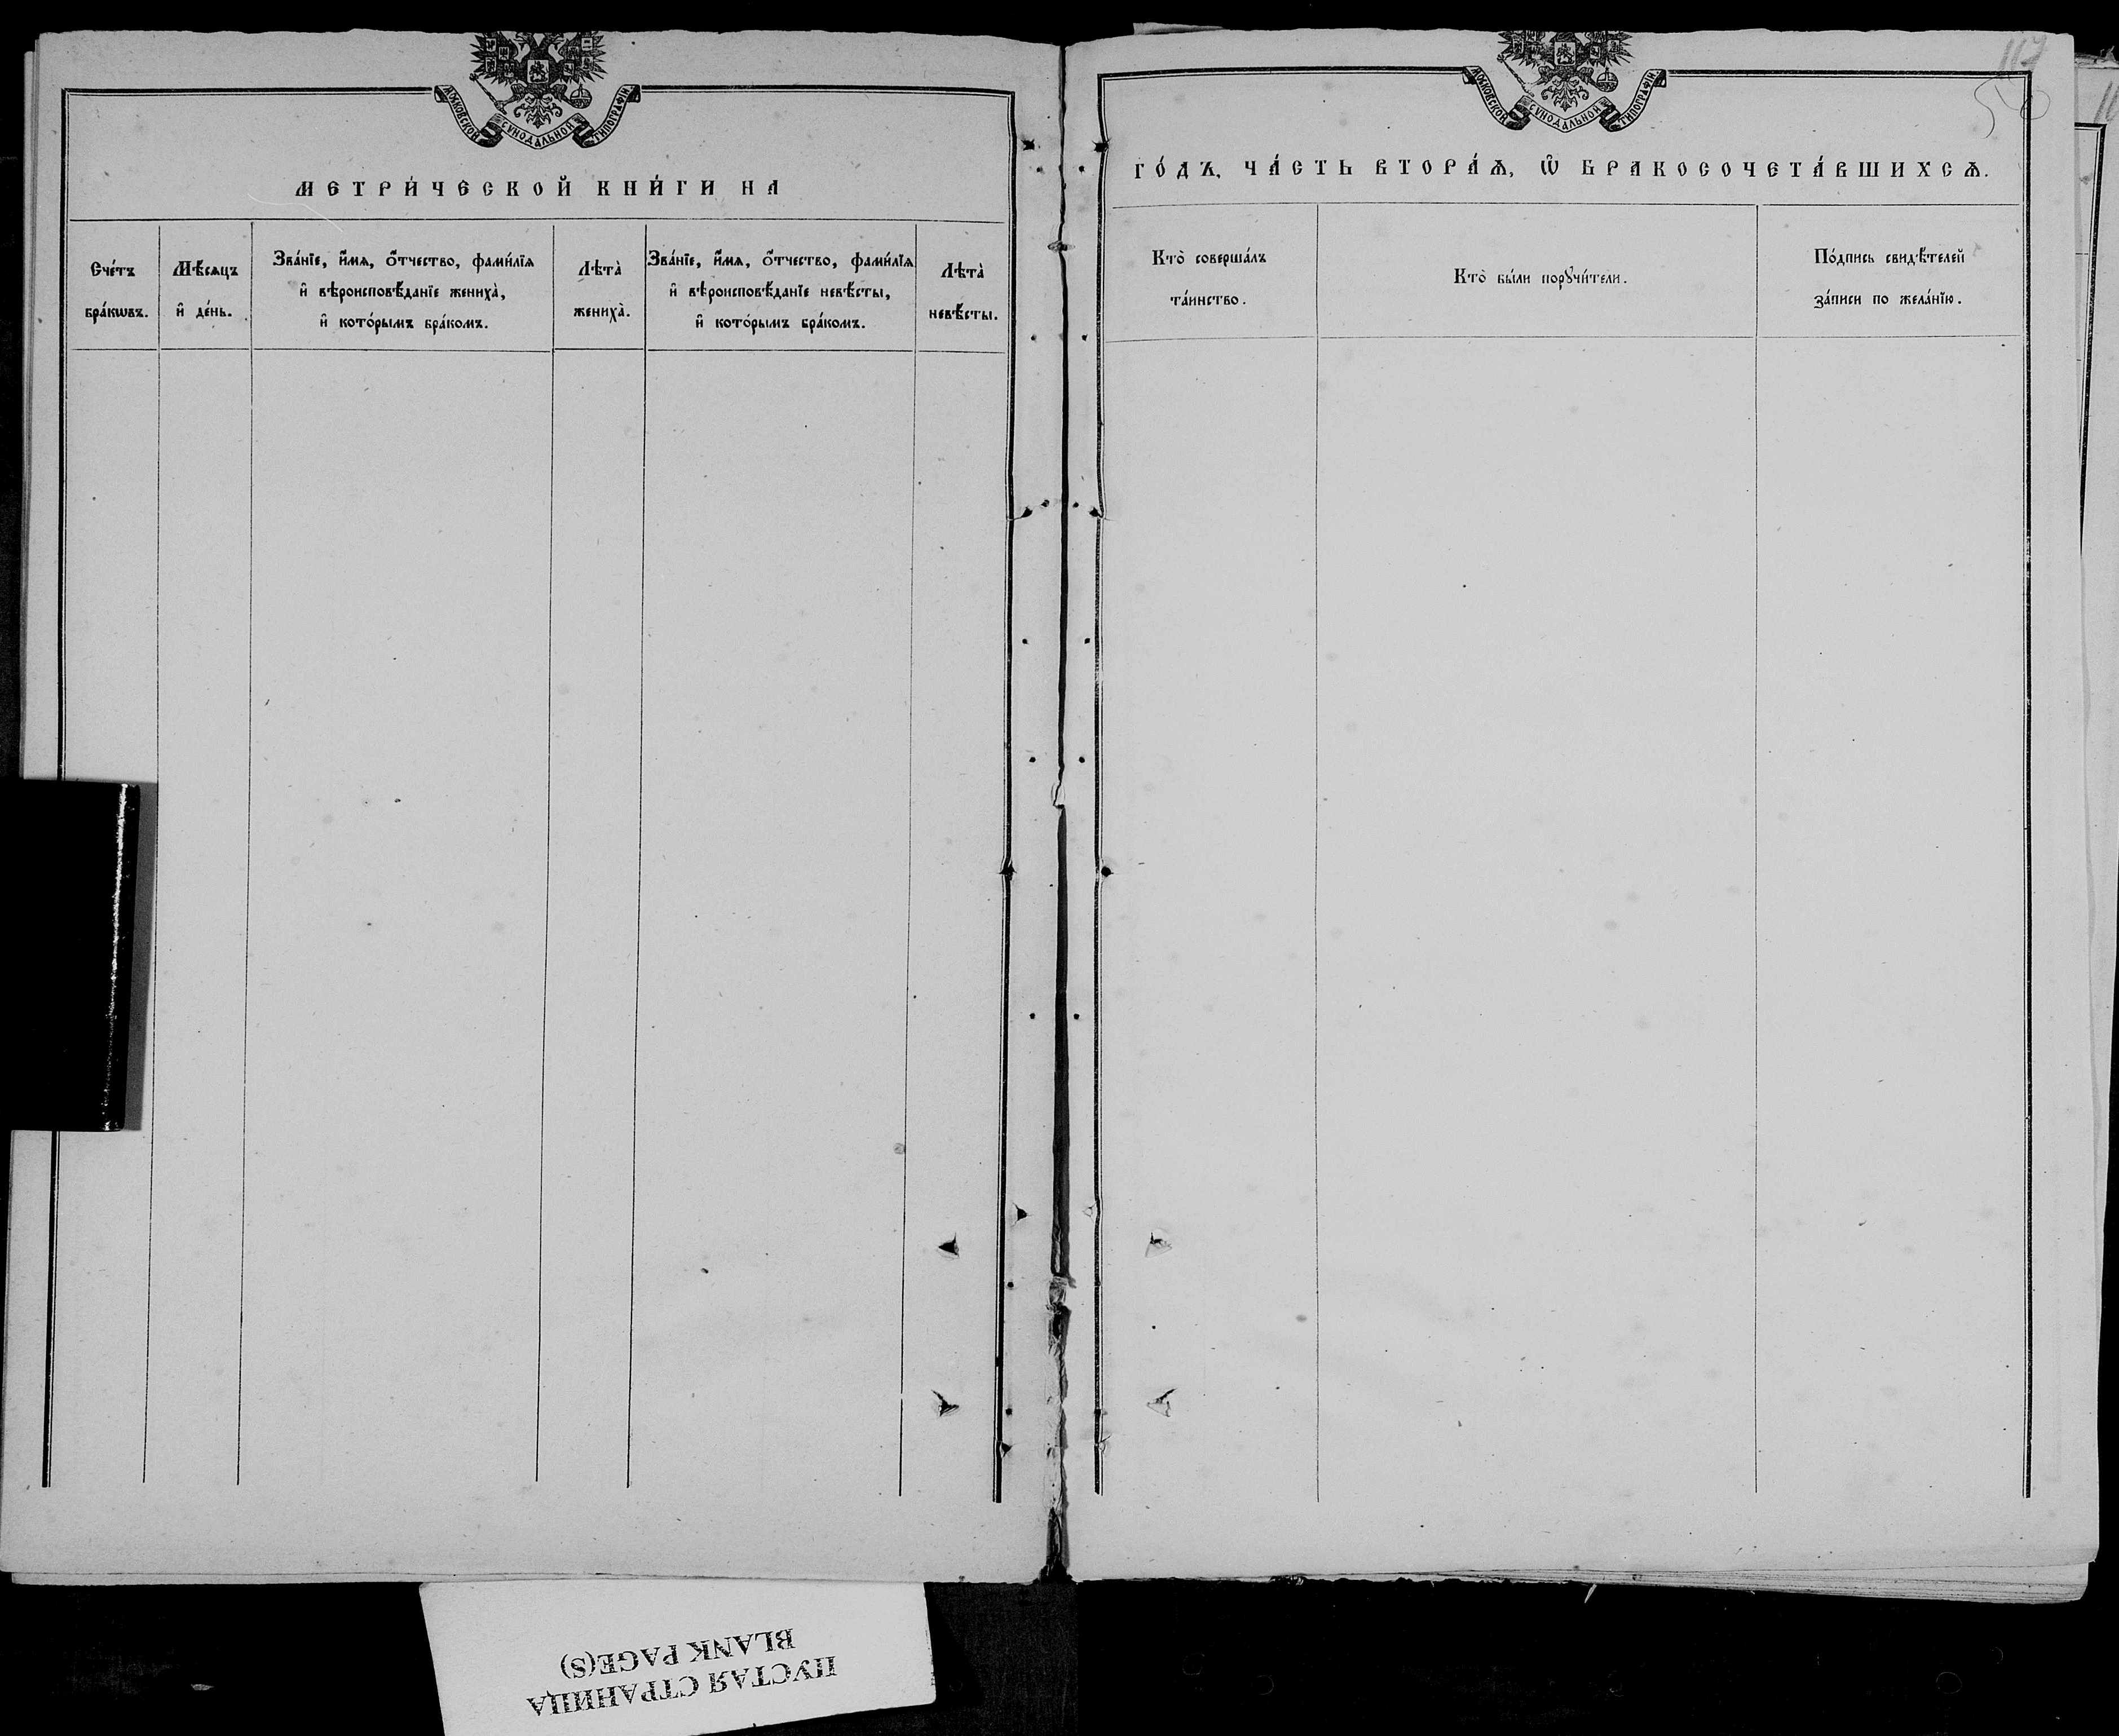 МОСКОВСКОЙ СѴНОДАЛЬНОЙ ТИПОГРАФІИ.
МЕТРИ́ЧЕСКОЙ КНИ́ГИ НА
Сче́тъ
бра́кѡвъ.
Мѣ́сѧцъ
и҆ де́нь.
Зва́нїе, и҆́мѧ, ѻ҆́тчество, фами́лїѧ
и҆ вѣроисповѣ́данїе жениха̀,
и҆ кото́рымъ бра́комъ.
Лѣта̀
жениха̀.
Зва́нїе, и҆́мѧ, ѻ҆́тчество, фами́лїѧ
и҆ вѣроисповѣ́данїе невѣ́сты,
и҆ кото́рымъ бра́комъ.
Лѣта̀
невѣ́сты.
117
МОСКОВСКОЙ СѴНОДАЛЬНОЙ ТИПОГРАФІИ.
ГО́ДЪ, ЧА́СТЬ ВТОРА́Ѧ, Ѽ БРАКОСОЧЕТА́ВШИХСѦ.
Кто̀ соверша́лъ
та́инство.
Кто̀ бы́ли порꙋчи́тели.
По́дпись свидѣ́телей
за́писи по жела́нїю.
ПУСТАЯ СТРАНИЦА
BLANK PAGE(S)